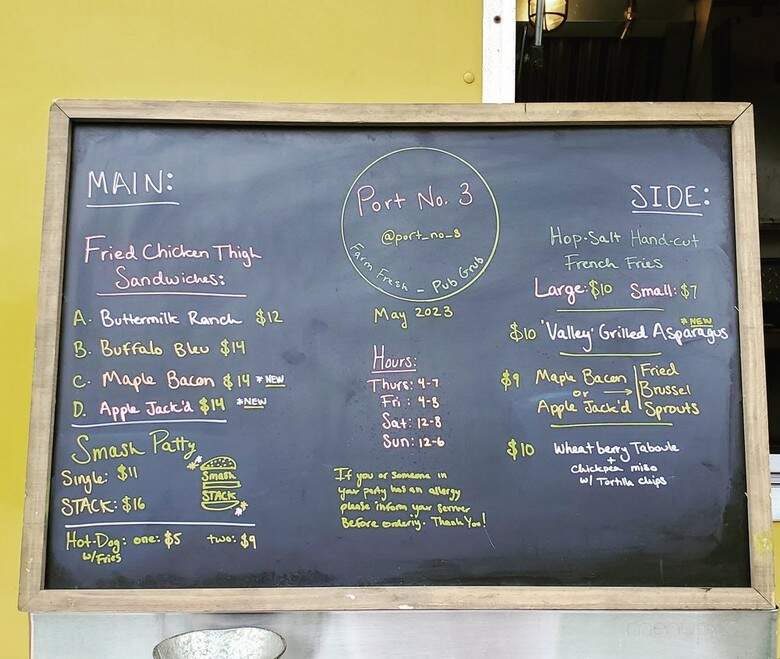 MAIN:
Fried Chicken Thigh
Sandwiches:
A. Buttermilk Ranch $12
B. Buffalo Bleu $14
C. Maple Bacon $14 *NEW
D. Apple Jack'd $14 *NEW
Smash Patty
Single: $11
STACK: $16
Smash
STACK
Hot-Dog: one: $5 two: $9
w/Fries
Port No. 3
@port_no_3
Farm Fresh - Pub Grub
May 2023
Hours:
Thurs: 4-7
Fri: 4-8
Sat: 12-8
Sun: 12-6
If you or someone in
your party has an allergy
please inform your server
Before ordering. Thank You!
SIDE:
Hop-Salt Hand-cut
French Fries
Large: $10 Small: $7
*NEW
$10 'Valley' Grilled Asparagus
$9 Maple Bacon
or
Apple Jack'd
Fried
Brussel
Sprouts
$10 Wheatberry Taboule
+
Chickpea miso
w/ Tortilla chips